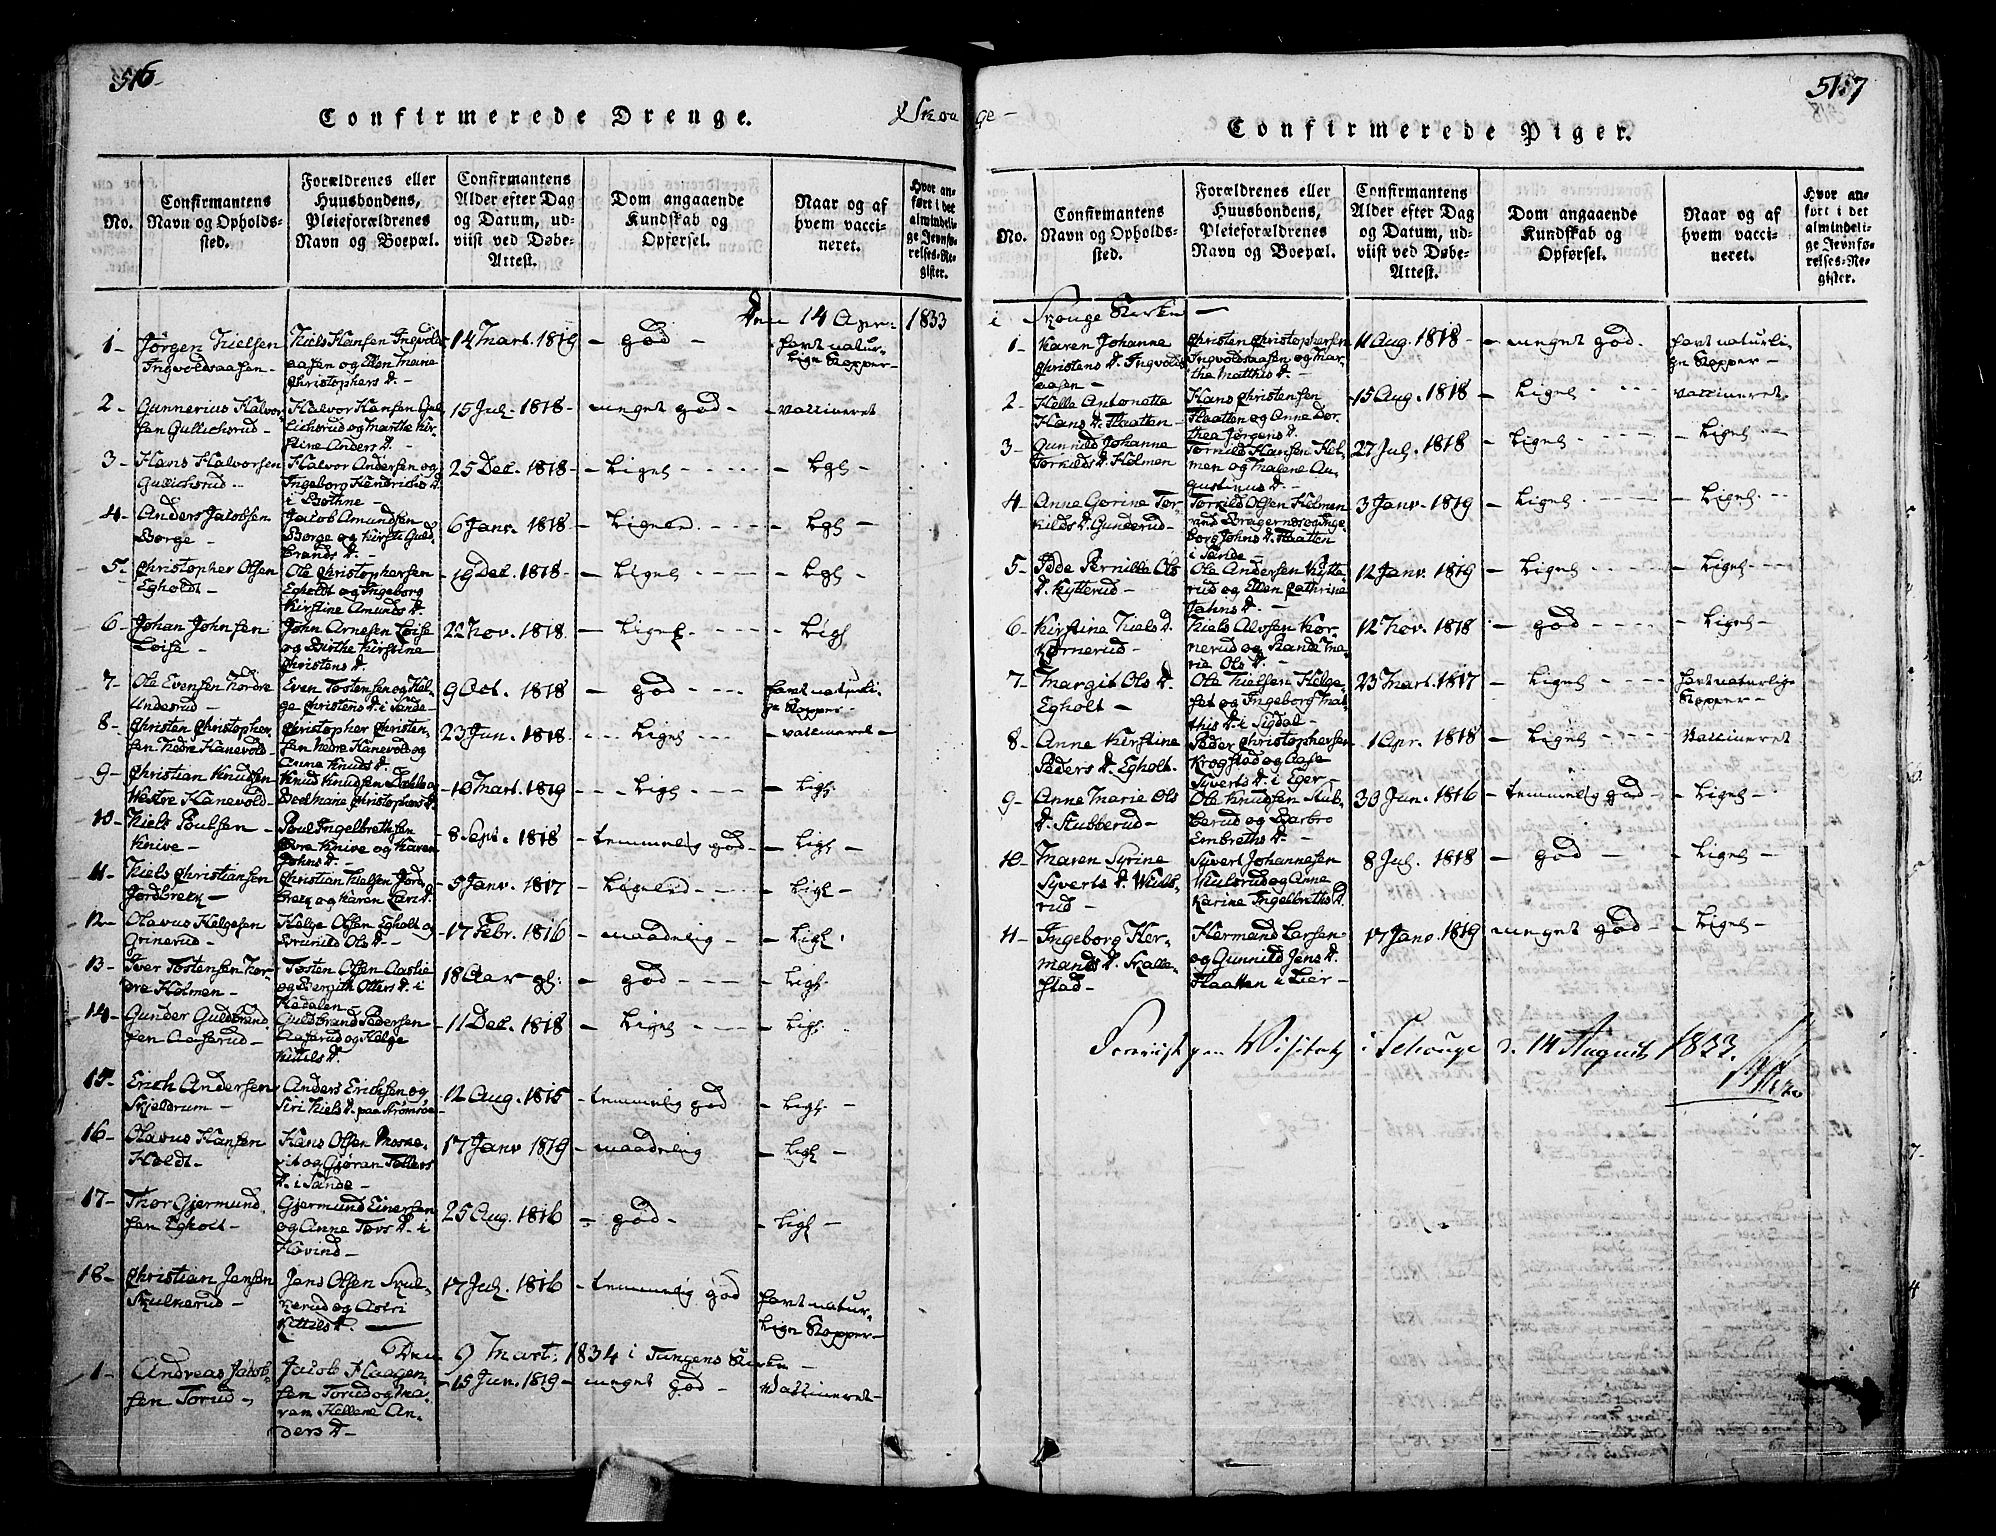 516
Confirmerede Drenge.
No.
Confirmantens
Navn og Opholds-
sted.
Forældrenes eller
Huusbondens,
Pleieforældrenes
Navn og Boepæl.
Confirmantens
Alder efter Dag
og Datum, ud-
viist ved Døbe-
Attest.
Dom angaaende
Kundskab og
Opførsel.
Naar og af
hvem vacci-
neret.
Hvor an-
ført i det
almindeli-
ge Jevnfø-
relses-Re-
gister.
Den 14 Apr. 1833
1- Jørgen Nielsen Ingvoldsaasen- Niels Hansen Ingvolds aasen og Ellen Marie Christophers D.- 14 Mart. 1819 - god - havt natur- lige Kopper-
2- Gunnerius Halvor- sen Gullichsrud- Halvor Hansen Gul- lichsrud og Marthe Kir- stine Anders D.- 15 Jul. 1818- meget god- - vaccineret
3- Hans Halvorsen Gullichsrud Halvor Andersen og Ingeborg Hendrichs D. i Bothne- 25 Dec. 1818- - Ligel - - Lgl -
4- Anders Jacobsen Borge- Jacob Amundsen Borge og Kirsti Guld- brands D.- 6 Janv. 1818- - Ligeled. - Lgl -
5- Christopher Olsen Egholdt- Ole Christophersen Egholdt og Ingeborg Kirstine Amunds D. 19 Dec. 1818- - Ligel - - Lgl -
6- Johan Johnsen Loise John Arnesen Loise og Birthe Kirstine Christens D. 22 Nov. 1818. - Ligel - Ligl
7- Ole Evensen Nordre Underud- Even Tostensen og Hel- ge Christens D. i Sande- 9 Oct. 1818 - god - havt naturli- ge Kopper-
8- Christen Christopher- sen Nedre Hanevold- Christopher Christen- sen Nedre Hanevold og Anna Knuds D. 23 Jun. 1818 - Ligel - vaccineret -
9- Christian Knudsen Westre Hanevold- Knud Knudsen og Marie Christophers D. 16 Mart. 1819 - Ligel - Ligl.
10- Niels Poulsen Knive- Poul Ingelbrethsen Øvre Knive og Karen Johns D.- 8 Sept. 1818 - temmelig god- - Ligl -
11- Niels Christiansen Jordbrek- Christian Nielsen Jord- brek og Karen Lars D. 5 Janv. 1817 - Ligeled - Ligl -
12- Olavus Helgesen Grinerud- Helge Olsen Egholt og Brunild Ols D.- 17 Febr. 1816 - maadelig - - Ligl.
13- Iver Tostensen Nor- dre Holmen- Tosten Olsen Aaslie og Bergith Otters D. i Hedalen- 18 Aar gl. - god - Ligl.
14- Gunder Guldbrand- sen Aaserud- Guldbrand Pedersen Aaserud og Helge Kittils D. 11 Dec. 1818 - Ligel - Ligl.
15- Erich Andersen Skjeldrum- Anders Erichsen og Siri Niels D. paa Strømsøe- 12 Aug. 1815 - temmelig god - Ligl.
16- Olavus Hansen Holdt- Hans Olsen og Gjøran Tollers D. i Sande- 17 Janv 1819 - maadelig - Ligl -
17- Thor Gjermund- sen Egholt- Gjermund Einersen og Anne Tovs D. i Hovind- 25 Aug. 1816 - god - - Ligl -
18- Christian Jensen Skulkerud- Jens Olsen Skul- kerud og Astri Kittils D. 17 Jul. 1816 - temmelig god havt natur- lige Kopper-
Den 9 Mart. 1834 i Tangens Kirke -
1- Andreas Jacob- sen Torud- Jacob Haagen- sen Torud og Ma- ren Hellene An- ders D- 15 Jun. 1819- meget god - Vaccineret-
i Skouge -
517
Confirmerede Piger.
No.
Confirmantens
Navn og Opholds-
sted.
Forældrenes eller
Huusbondens,
Pleieforældrenes
Navn og Boepæl.
Confirmantens
Alder efter Dag
og Datum, ud-
viist ved Døbe-
Attest.
Dom angaaende
Kundskab og
Opførsel.
Naar og af
hvem vacci-
neret.
Hvor an-
ført i det
almindeli-
ge Jevnfø-
relses-Re-
gister.
i Skouge Kirke -
1- Karen Johanne Christens D. Ingvolds aasen- Christen Christophersen Ingvoldsaasen og Mar- the Matthis D.- 11 Aug. 1818 - meget god. havt naturli- ge Kopper-
2- Helle Antonette Hans D. Flaatten- Hans Christensen Flaatten og Anne Dor- thea Jørgens D. 15 Aug. 1818 - Ligel - vaccineret.
3- Gunnild Johanne Torkilds D. Holmen Torkild Hansen Hol- men og Malene Au- gustinus D.- 27 Jul. 1818 - Ligel - Ligel -
4- Anne Gorine Tor- kilds D. Gunderud- Torkild Olsen Holmen ved Bragernes og Inge- borg Johns D. Flaatten i Sande- 3 Janv. 1819 - Ligel - Ligel
5- Idde Pernille Ols D. Kytterud- Ole Andersen Kytte- rud og Ellen Cathrine Jahns D.- 12 Janv. 1819 - Ligel - Ligel
6- Kirstine Niels D. Kornerud- Niels Alvsen Kor- nerud og Rande Ma- rie Ols D.- 12 Nov. 1818 - god - Ligel -
7- Margit Ols D. Egholt- Ole Nielsen Helge- set og Ingeborg Mat- this D. i Sigdal- 23 Mart. 1817 - Ligel - havt naturlige Kopper-
8- Anne Kirstine Peders D. Egholt. Peder Christophersen Krogstad og Aase Syverts D. i Eger- 1 Apr. 1818 - Ligel - Vaccineret
9- Anne Marie Ols D. Stubberud- Ole Knudsen Stub- berud og Barbro Embreths D.- 30 Jun. 1816 - temmelig god - Ligel -
10- Maren Syrine Syverts D. Wuls- rud- Syvert Johannesen Wulsrud og Anne Karine Ingelbreths D. 8 Jul. 1818 - god - Ligel -
11- Ingeborg Her- mands D. Skalle- stad- Hermand Larsen og Gunnild Jens D. Flaatten i Lier- 17 Janv. 1819 meget god - - Ligel -
Fremvist ved Visitats i Schouge d. 14 August 1833.